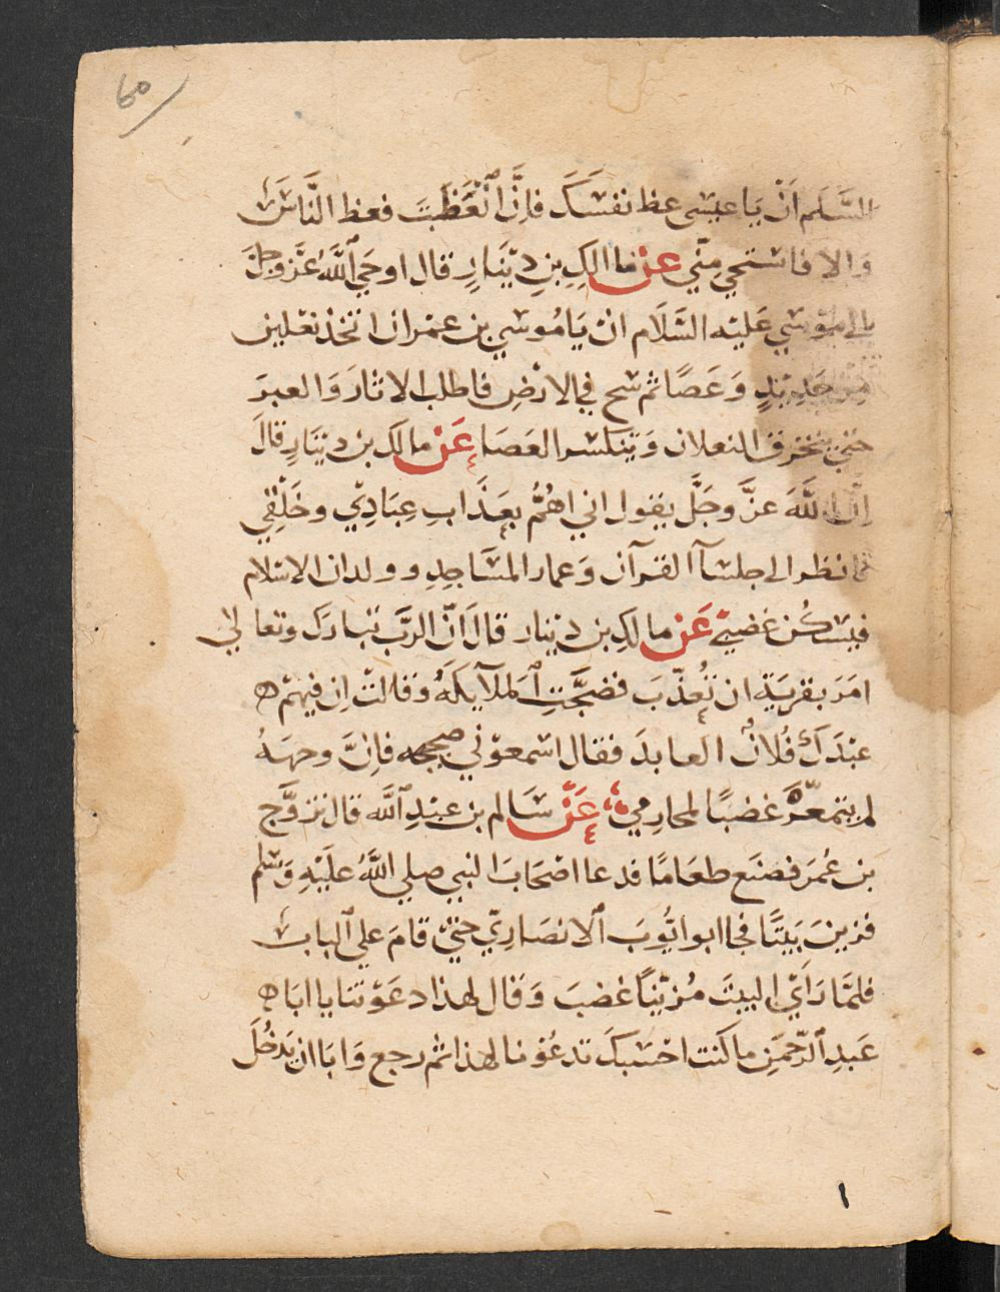 60
السَّلَم اَنْ يَا عيسَى عظ نفسَكَ فاِنَّ اتَّعَظَتَ فعظ النَّاسَ
وَالا فاستحي مِنّي عنْ ما الكِ بنِ دِيْنَارِ قال اوحَي اللَّهُ عَزَّ وجلَّ
الي مُوْسَي عَليْه السَّلَام انْ يَا مُوسَي بن عمْران اتخذ نعْلين
مِنْ حَدِيْدٍ وَعَصًا ثم سح في الارْضِ فاطلب الاثارَ وَالعبرَ
حتي ينخرق النعلان وَيَنكسر العَصَا عَنْ مالكِ بن دينَارٍ قالَ
انَّ اللَّهَ عزَّ وجَلَّ يقول اني اهُمُّ بعَذَابِ عِبَادِيْ وخَلْقِي
فانظر الي جلسآ القرآن وَعمار المسَاجِدِ وولدان الاسلام
فيسْكُن غضبيْ عَنْ مالكِ بن دينار قالَ انّ الرَّبَّ تبارَك وتعالي
امَرَ بقريَة ان تُعذّبَ فضجَّتِ الملآيكَهُ وَقالتْ اِن فيهمْ
عبْدَكَ فُلانٌ العابدَ فقال اسْمعوْني ضجيجه فاِنَّ وجهَهُ
لم يتمعّرَ غضبًا لمحارِمي عَنْ سَالم بن عبْدِ اللَّه قالَ تزوَّج
بن عُمَرَ فصنَع طعَامًا فدعا اصْحَابَ النبي صلي اللَّهُ علَيْهِ وَسَلم
فزينَ بَيتًا فجا ابو ايُّوبَ الانصَارِيّ حتيْ قامَ علي الباب
فلمَّا رَاَيْ البيتَ مُزيّنًا غضبَ وَقال لهذا دعَوْتنا يا ابَا
عَبدِ الرّحمَنِ ما كنت احْسَبكَ تدعُوْنا لهذا ثم رجع وَابَا ان يَدْخُلَ
١